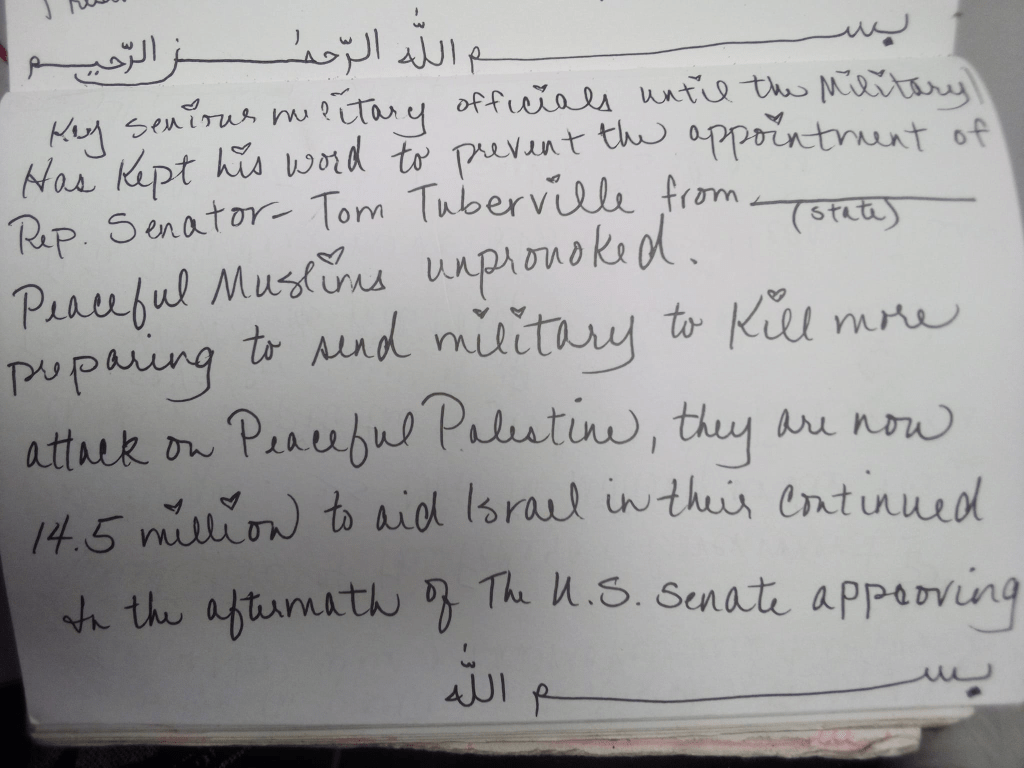 بســـم اللّٰه الرّحمٰـــن الرّحيـــم
Key senious military officials until the Military
Has Kept his word to prevent the appointment of
Rep. Senator- Tom Tuberville from ________
(state)
Peaceful Muslims unprovoked.
preparing to send military to Kill more
attack on Peaceful Palestine, they are now
14.5 million to aid Israel in their continued
In the aftermath of The U.S. Senate approving
بســـم اللّٰه